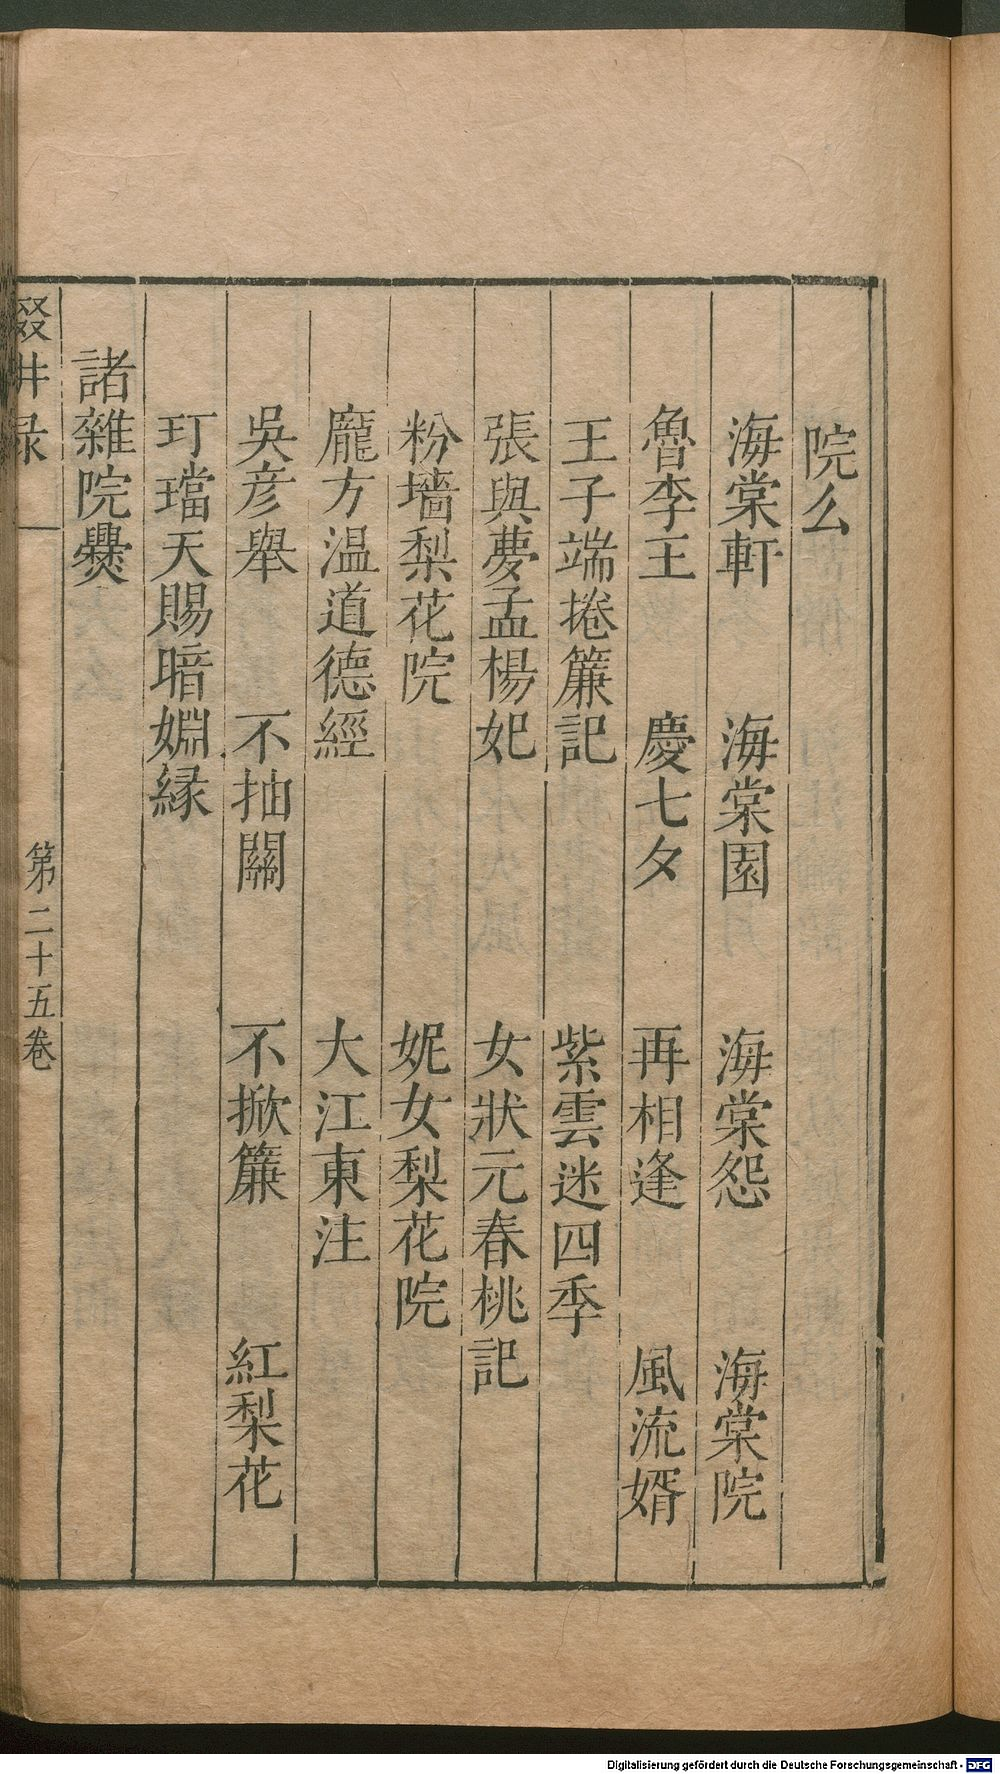 院么
海棠軒 海棠園 海棠怨 海棠院
魯李王 慶七夕 再相逢 風流婿
王子端捲簾記 紫雲迷四季
張與夢孟楊妃 女狀元春桃記
粉墻梨花院 妮女梨花院
龐方温道德經 大江東注
吳彦舉 不抽關 不掀簾 紅梨花
玎璫天賜暗婣縁
諸雜院爨
第二十五卷
Digitalisierung gefördert durch die Deutsche Forschungsgemeinschaft - DFG